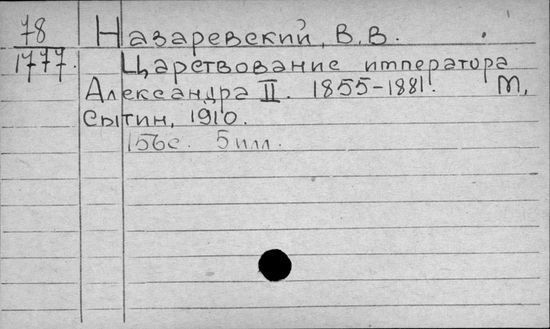 78 Назаревский, В.В.
1777. Царствование императора
Александра II. 1855-1881. М,
Сытин, 1910.
156с. 5 илл.